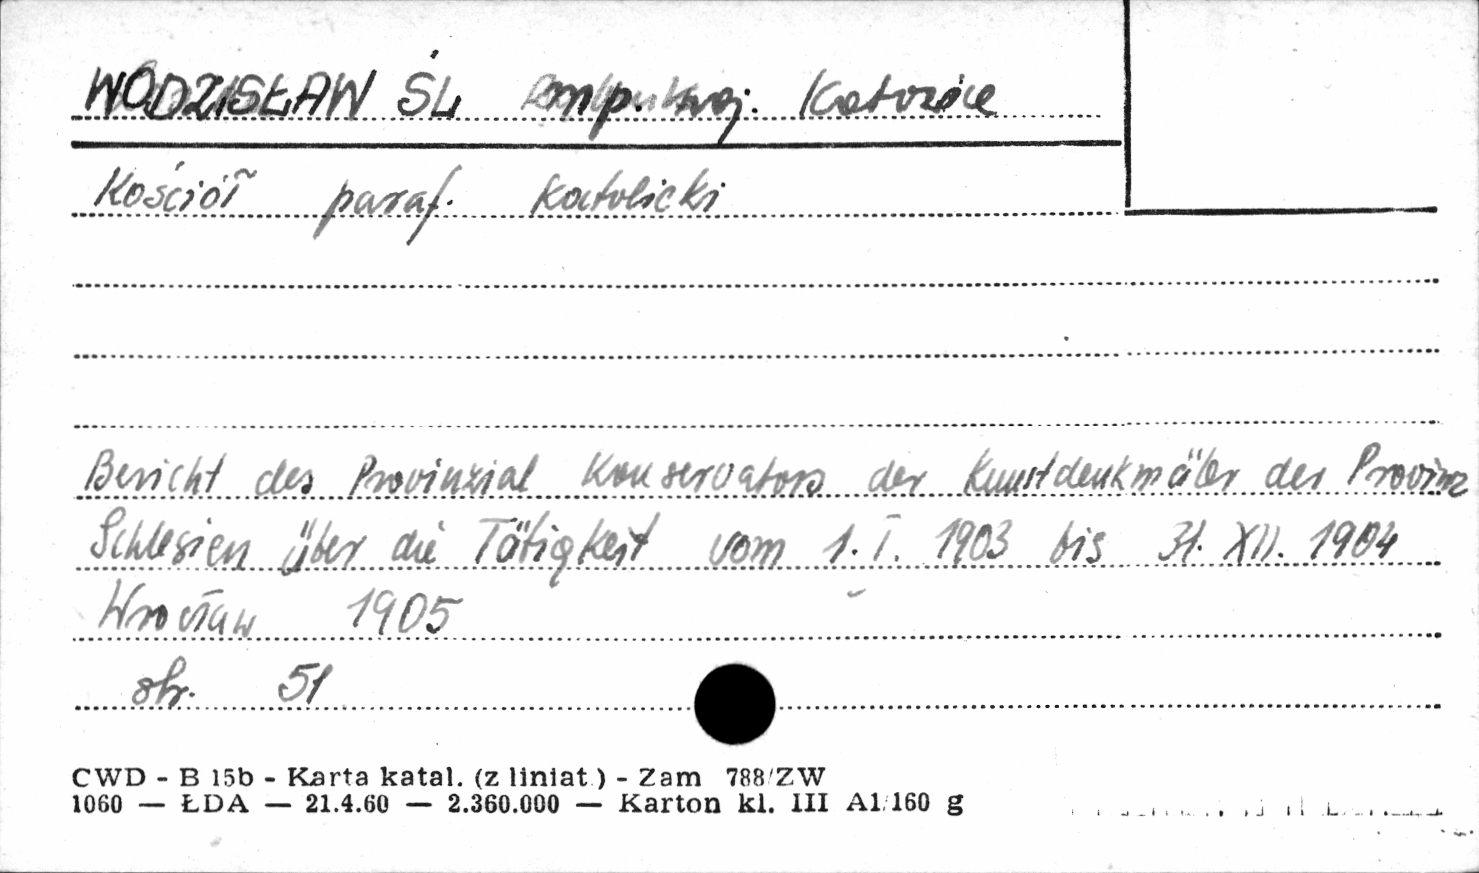 WODZISŁAW ŚL woj. Katowice
Kościół paraf. katolicki
Bericht des Provinzial Konservators der Kunstdenkmäler der Provinz
Schlesien über die Tätigkeit vom 1. I. 1903 bis 31. XII. 1904
Wrocław 1905
str. 51
CWD - B 15b - Karta katal. (z liniat.) - Zam 788/ZW
1060 — ŁDA — 21.4.60 — 2.360.000 — Karton kl. III A1/160 g